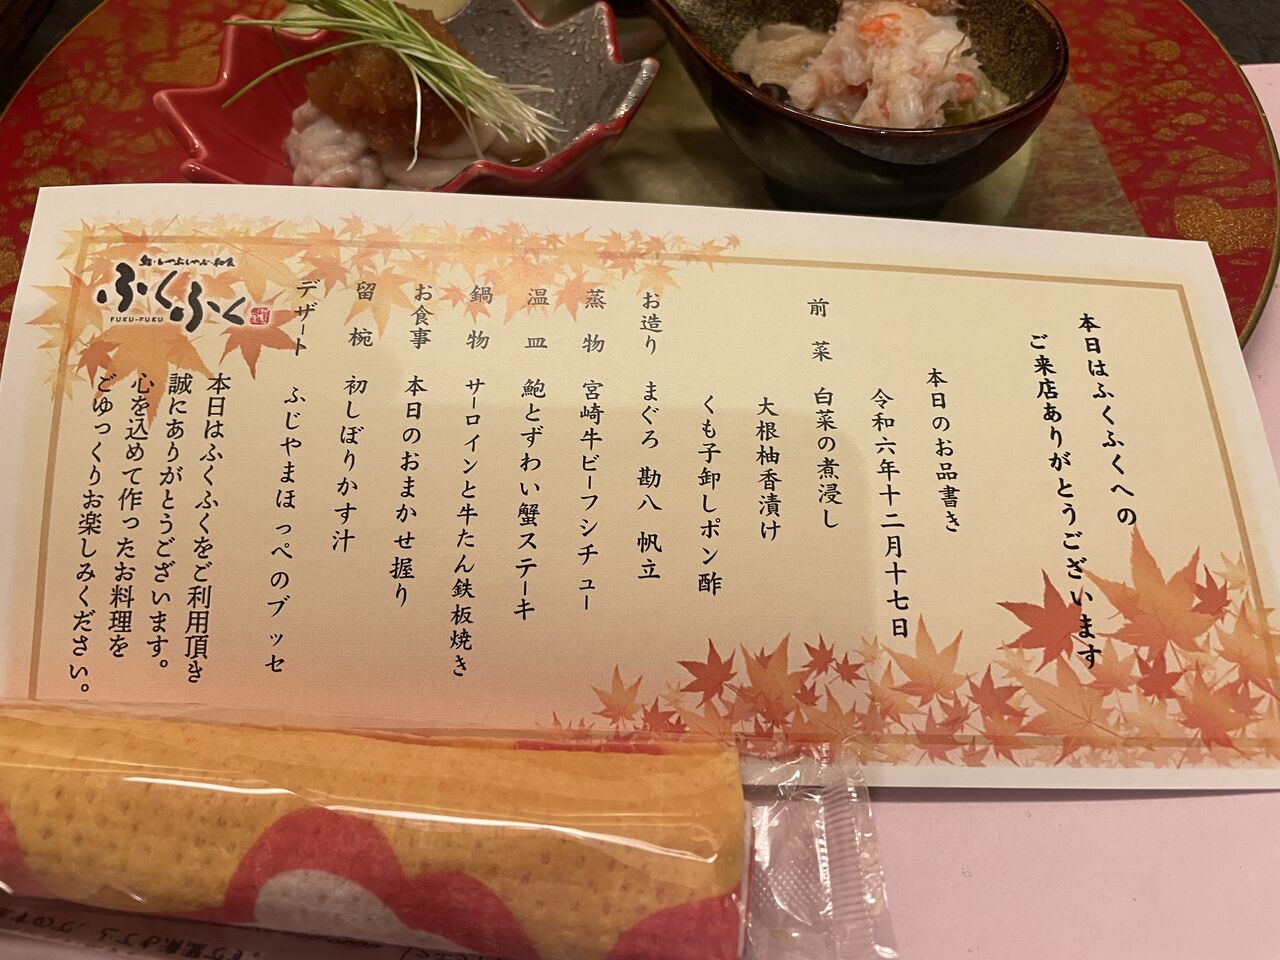 本日はふくふくへの
ご来店ありがとうございます
本日のお品書き
令和六年十二月十七日
前菜 白菜の煮浸し
大根柚香漬け
くも子卸しポン酢
お造り まぐろ 勘八 帆立
蒸物 宮崎牛ビーフシチュー
温皿 鮑とずわい蟹ステーキ
鍋物 サーロインと牛たん鉄板焼き
お食事 本日のおまかせ握り
留椀 初しぼりかす汁
デザート ふじやまほっぺのブッセ
鮨・しゃぶしゃぶ・和食
ふくふく
FUKU-FUKU
本日はふくふくをご利用頂き
誠にありがとうございます。
心を込めて作ったお料理を
ごゆっくりお楽しみください。